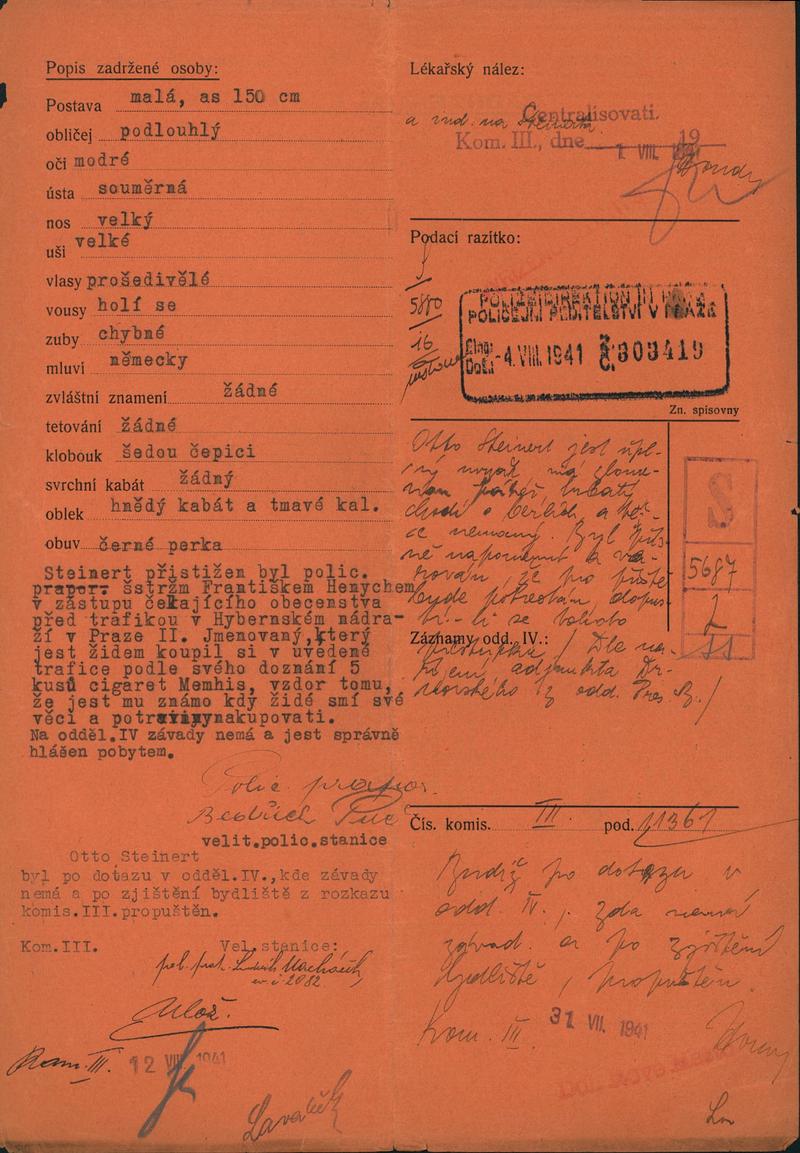 Popis zadržené osoby:
Postava malá, as 150 cm
obličej podlouhlý
oči modré
ústa souměrná
nos velký
uši velké
vlasy prošedivělé
vousy holí se
zuby chybné
mluví německy
zvláštní znamení žádné
tetování žádné
klobouk šedou čepici
svrchní kabát žádný
oblek hnědý kabát a tmavé kal.
obuv černé perka
Steinert přistižen byl polic.
prapor. šstržm Františkem Henychem
v zástupu čekajícího obecenstva
před trafikou v Hybernském nádra-
ží v Praze II. Jmenovaný, který
jest židem koupil si v uvedené
trafice podle svého doznání 5
kusů cigaret Memhis, vzdor tomu,
že jest mu známo kdy židé smí své
věci a potraviny nakupovati.
Na odděl.IV závady nemá a jest správně
hlášen pobytem.
Polic. prapor.
Bedřich
velit.polic.stanice
Otto Steinert
byl po dotazu v odděl.IV.,kde závady
nemá a po zjištění bydliště z rozkazu
komis.III.propuštěn.
Kom.III. Vel.stanice:
2082
Ulož.
Kom. III. 12 VIII 1941
Lékařský nález:
Centralisovati.
a ind. na Steinerta
Kom. III., dne 1. VIII. 1941 19
Podací razítko:
5880
16
POLIZEIDIREKTION IN PRAG
POLICEJNÍ ŘEDITELSTVÍ V PRAZE
Eing.
Došlo -4.VIII.1941 Č. 303419
Zn. spisovny
S
5687
2
11
Otto Steinert jest úpl-
ný mrzák, má zlome-
nou páteř, hrbatý,
chodí o berlích, a těž-
ce nemocný. Byl přís-
ně napomenut a va-
rován, že pro příště
bude potrestán, dopus-
tí-li se tohoto
přestupku / Dle na-
Záznamy odd. IV.:
řízení adjunkta Dr.
z odd. Pres. B./
Čís. komis. III. pod. 11361
Budiž po dotazu v
odd. IV., zda nemá
závad a po zjištění
bydliště, propuštěn.
Kom. III 31 VII. 1941